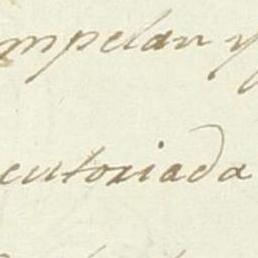 mpelan y
cutoriada